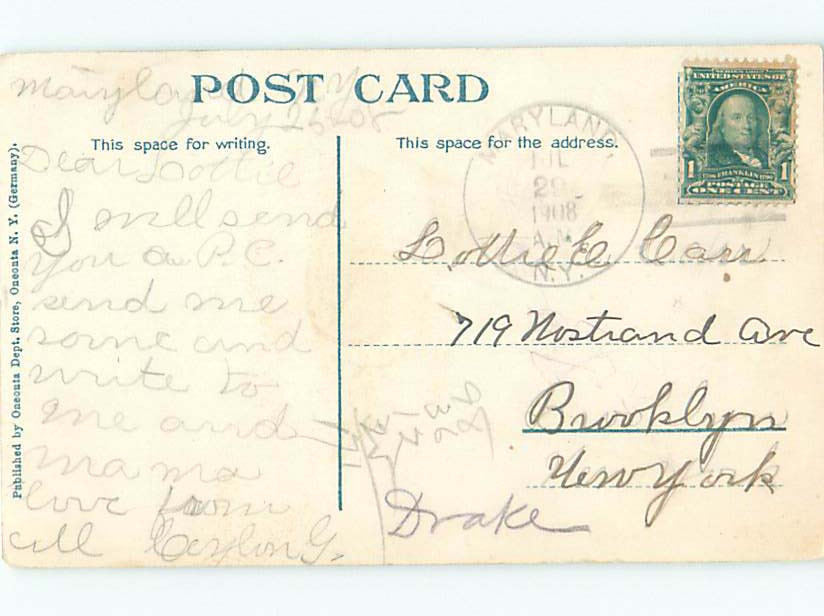 POST CARD
Maryland N.Y.
July 28-08
This space for writing.
Dear Lottie
I will send
you a P.C.
send me
some and
write to
me and
mama
love from
all Ceylon G.
Published by Oneonta Dept. Store, Oneonta N. Y. (Germany).
This space for the address.
MARYLAND
JUL
29
1908
A.M.
N.Y.
UNITED STATES OF
AMERICA
1 1
FRANKLIN
POSTAGE
ONE CENT
Lottie E Carr
719 Nostrand Ave
Brooklyn
New York
Drake